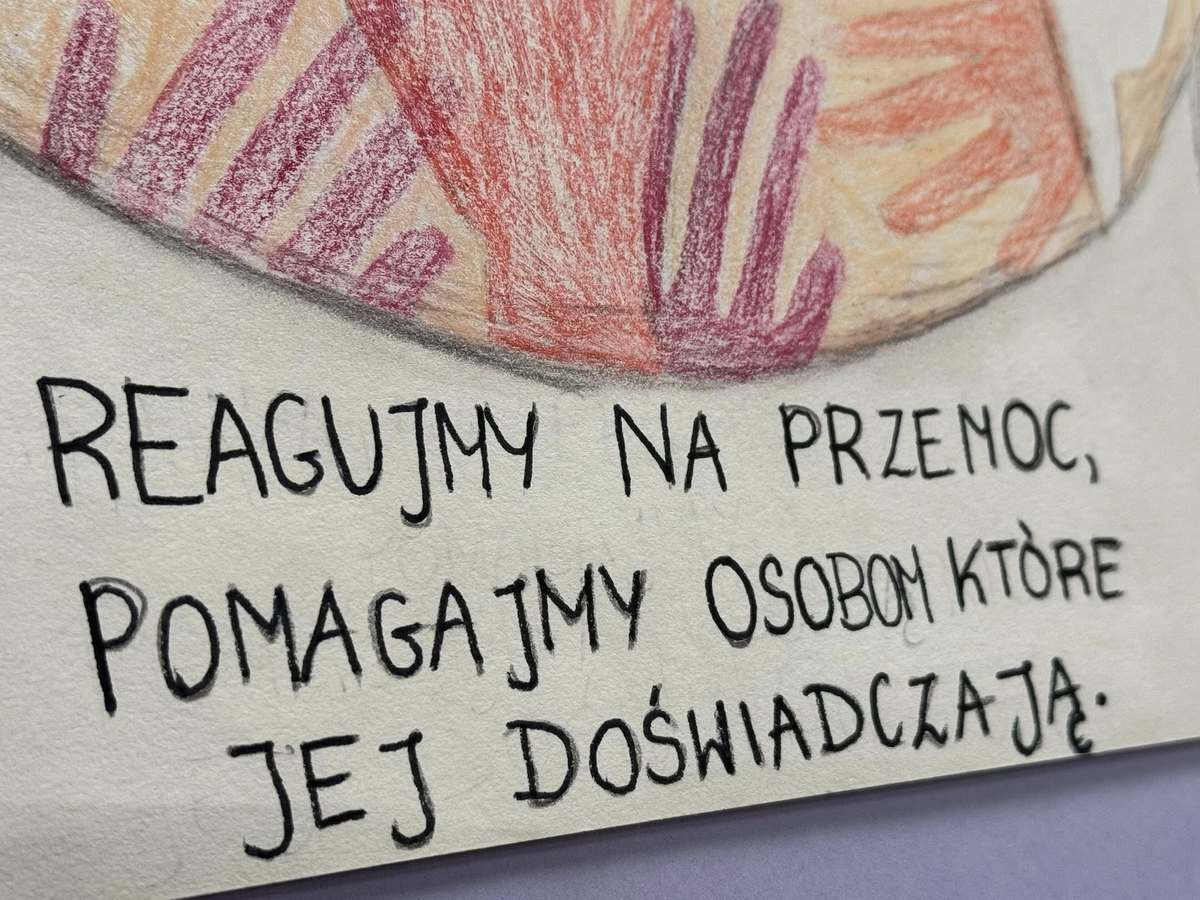 REAGUJMY NA PRZEMOC,
POMAGAJMY OSOBOM KTÒRE
JEJ DOŚWIADCZAJĄ.